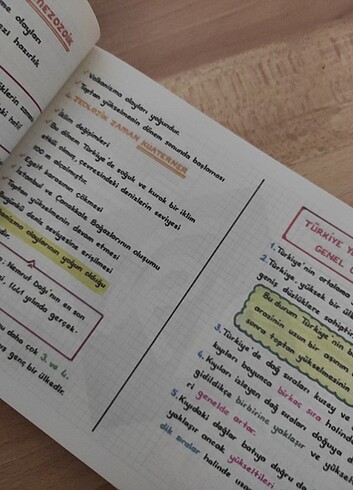 MEZOZOİK
me olayları
hazırlık
Volkanizma olayları yoğundur.
Toptan yükselmenin dönem sonunda başlaması
JEOLOJİK ZAMAN KUATERNER
İklim değişimleri
Bu dönem Türkiye'de soğuk ve kurak bir iklim
olup, çevresindeki denizlerin seviyesi
100 m alçalmıştır.
Egeit karasının çökmesi
İstanbul ve Çanakkale Boğazlarının oluşumu
Toptan yükselmenin devam etmesi
deniz seviyesine erişilmesi
olaylarının yoğun olduğu
Nemrut Dağı'nın en son
1441 yılında gerçek-
daha çok 3. ve 4.
genç bir ülkedir.
TÜRKİYE
GENEL
1. Türkiye'nin ortalama
2. Türkiye yüksek bir ülk
geniş düzlüklere sahiptir
Bu durum Türkiye'nin
arazinin uzun bir aşınım
sonra toptan yükselmesinin
3. Türkiye'de dağ sıraları kuzey ve
kıyıları boyunca birkaç sıra halind
4. Kıyıları izleyen dağ sıraları doğuya d
gidildikçe birbirine yaklaşır ve yüksel
ri genelde artar.
5. Kıyıdaki dağlar batıya doğru da
yaklaşır ancak yükseltileri
dik sıralar halinde uzan